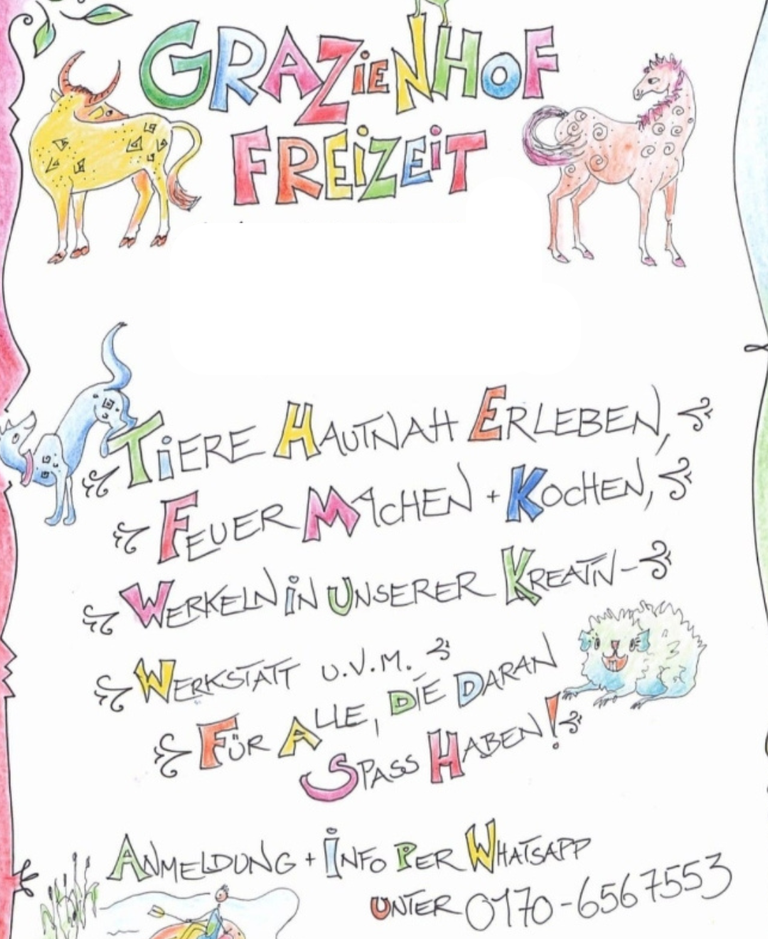 GRAZIENHOF
FREIZEIT
TIERE HAUTNAH ERLEBEN,
FEUER MACHEN + KOCHEN,
WERKELN IN UNSERER KREATIV-
WERKSTATT U.V.M.
FÜR ALLE, DIE DARAN
SPASS HABEN!
ANMELDUNG + INFO PER WHATSAPP
UNTER 0170-6567553